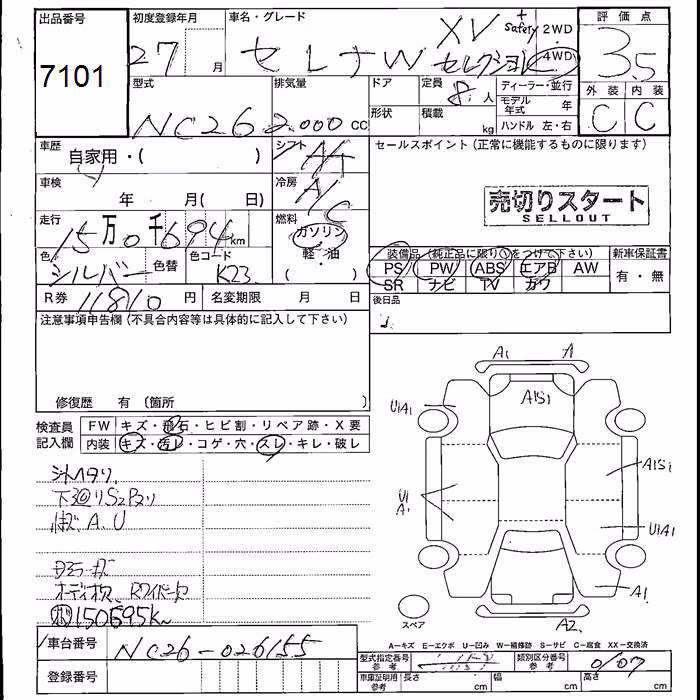 出品番号
7101
初度登録年月
27 月
車名・グレード
セレナW XV セレクション + Safety
2WD
4WD
評価点
3.5
外装 内装
C C
型式
NC26
排気量
2.000 cc
ドア
形状
定員
8 人
積載
kg
ディーラー・並行
モデル年式 年
ハンドル 左・右
車歴
自家用・( )
シフト
AT
セールスポイント(正常に機能するものに限ります)
車検
年 月( 日)
冷房
A/C
売切りスタート
SELLOUT
走行
15万0千694km
燃料
ガソリン
軽・油
( )
色
シルバー
色替
色コード
K23
装備品(純正品に限り○をつけて下さい)
PS PW ABS エアB AW
SR ナビ TV カワ
新車保証書
有・無
R券 11810円
名変期限 月 日
後日品
注意事項申告欄(不具合内容等は具体的に記入して下さい)
修復歴 有(箇所 )
検査員
記入欄
FW キズ・飛石・ヒビ割・リペア跡・X要
内装 キズ・汚レ・コゲ・穴・スレ・キレ・破レ
シートヘタリ
下廻りS2Pスリ
A.U
オーディオ欠 Rワイパー欠
150695k
A1 A
A1S1
U1A1
A1S1
U1 A1
U1A1
A1
A2
スペア
A-キズ E-エクボ U-凹み W-補修跡 S-サビ C-腐食 XX-交換済
車台番号
NC26-026155
登録番号
型式指定番号
参考
類別区分番号
参考
0107
車庫証明用
参考
長さ cm
幅 cm
高さ cm